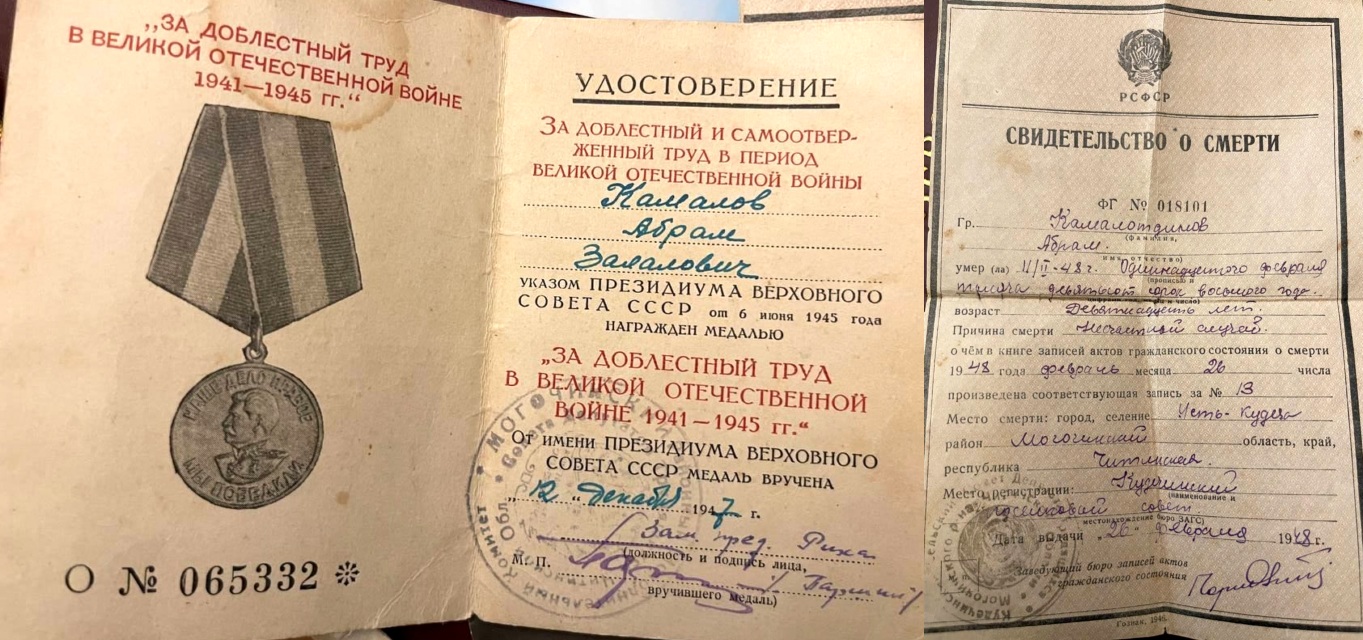 „ЗА ДОБЛЕСТНЫЙ ТРУД
В ВЕЛИКОЙ ОТЕЧЕСТВЕННОЙ ВОЙНЕ
1941—1945 гг.“
НАШЕ ДЕЛО ПРАВОЕ
МЫ ПОБЕДИЛИ
О № 065332 ❊
УДОСТОВЕРЕНИЕ
ЗА ДОБЛЕСТНЫЙ И САМООТВЕР-
ЖЕННЫЙ ТРУД В ПЕРИОД
ВЕЛИКОЙ ОТЕЧЕСТВЕННОЙ ВОЙНЫ
Камалов
Абрам
Залалович
УКАЗОМ ПРЕЗИДИУМА ВЕРХОВНОГО
СОВЕТА СССР от 6 июня 1945 года
НАГРАЖДЕН МЕДАЛЬЮ
„ЗА ДОБЛЕСТНЫЙ ТРУД
В ВЕЛИКОЙ ОТЕЧЕСТВЕННОЙ
ВОЙНЕ 1941—1945 гг.“
От имени ПРЕЗИДИУМА ВЕРХОВНОГО
СОВЕТА СССР МЕДАЛЬ ВРУЧЕНА
„12“ декабря 1947 г.
Зам. пред. Рика
(должность и подпись лица,
М. П.
вручившего медаль)
РСФСР
СВИДЕТЕЛЬСТВО О СМЕРТИ
ФГ № 018101
Гр. Камалотдинов
(фамилия,
Абрам.
имя, отчество)
умер (ла) 11/II-48 г. Одиннадцатого февраля
(прописью и
тысяча девятьсот сорок восьмого года.
цифрами год, месяц и число)
возраст Девятнадцать лет.
Причина смерти Несчастный случай.
о чём в книге записей актов гражданского состояния о смерти
1948 года февраль месяца 26 числа
произведена соответствующая запись за № 13
Место смерти: город, селение Усть-Кудеча
район Могочинский область, край,
республика Читинская.
Место регистрации: Кудечинский
(наименование и
поселковый совет
местонахождение бюро ЗАГС)
Дата выдачи „26“ февраля 1948 г.
Заведующий бюро записей актов
гражданского состояния
Гознак. 1946